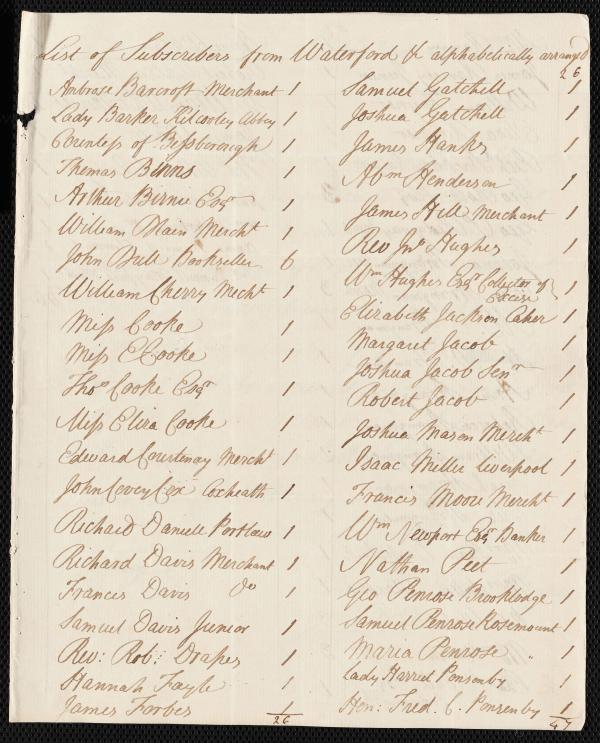 List of Subscribers from Waterford &c alphabetically arranged
Ambrose Barcroft Merchant 1
Lady Barker Kilcooley Abbey 1
Countess of Bessborough 1
Thomas Binns 1
Arthur Birnie Esqr 1
William Blain Mercht 1
John Bull Bookseller 6
William Cherry Mecht 1
Miss Cooke 1
Miss E Cooke 1
Thos Cooke Esqr 1
Miss Eliza Cooke 1
Edward Courtenay Mercht 1
John Covey Cox Coxheath 1
Richard Daniell Portlaw 1
Richard Davis Merchant 1
Francis Davis Do 1
Samuel Davis Junior 1
Rev: Rob: Drapes 1
Hannah Fayle 1
James Forbes 1
26
26
Samuel Gatchell 1
Joshua Gatchell 1
James Hanks 1
Abm Henderson 1
James Hill Merchant 1
Rev Jno Hughes 1
Wm Hughes Esqr Collector of Excise 1
Elizabeth Jackson Caher 1
Margaret Jacob 1
Joshua Jacob Senr 1
Robert Jacob 1
Joshua Mason Mercht 1
Isaac Miller Liverpool 1
Francis Moore Mercht 1
Wm Newport Esqr Banker 1
Nathan Peet 1
Geo Penrose Brooklodge 1
Samuel Penrose Rosemount 1
Maria Penrose " 1
Lady Harriet Ponsonby 1
Hon: Fred. C. Ponsonby 1
47